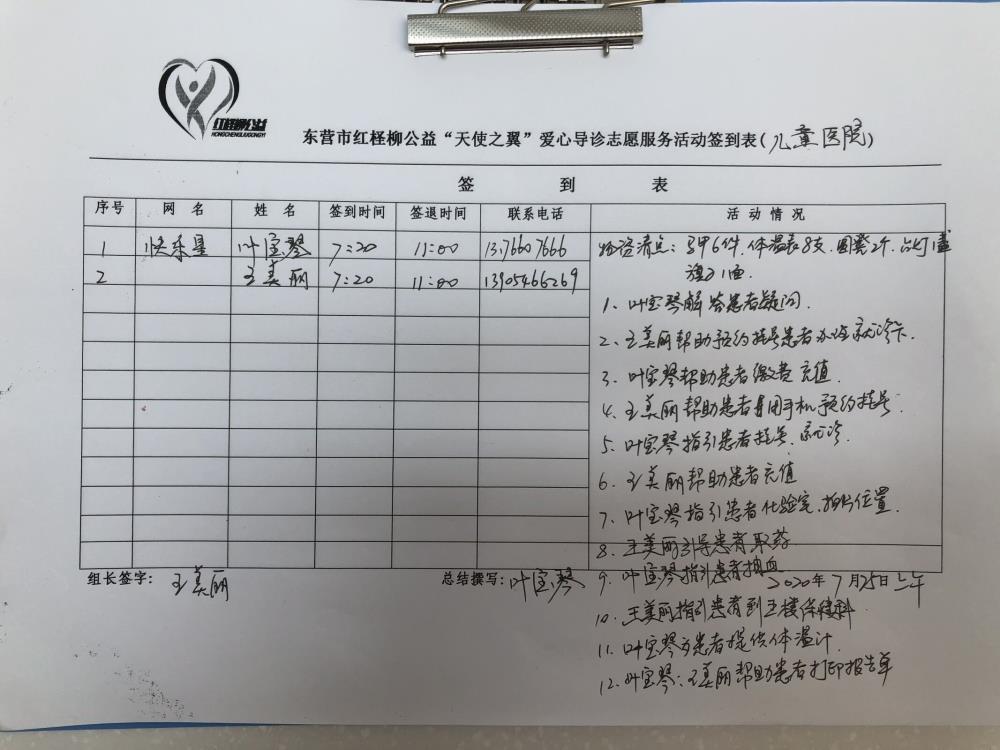 红柽柳公益
HONGCHENGLIUGONGYI
东营市红柽柳公益“天使之翼”爱心导诊志愿服务活动签到表(儿童医院)
签 到 表
序号 网 名 姓 名 签到时间 签退时间 联系电话 活 动 情 况
1 快乐星 叶宝琴 7:20 11:00 13176607666
2 王美丽 7:20 11:00 13905466269
物资清点：马甲6件.体温表8支.圆凳2个.台灯1盏
旗子1面.
1、叶宝琴解答患者疑问.
2、王美丽帮助预约挂号患者办理就诊卡.
3、叶宝琴帮助患者缴费充值.
4、王美丽帮助患者用手机预约挂号.
5、叶宝琴指引患者挂号、就诊.
6、王美丽帮助患者充值
7、叶宝琴指引患者化验室、拍片位置.
8、王美丽引导患者取药
9、叶宝琴指引患者抽血
组长签字：王美丽 总结撰写：叶宝琴 2020年7月25日上午
10、王美丽指引患者到五楼保健科
11、叶宝琴为患者提供体温计.
12、叶宝琴：王美丽帮助患者打印报告单